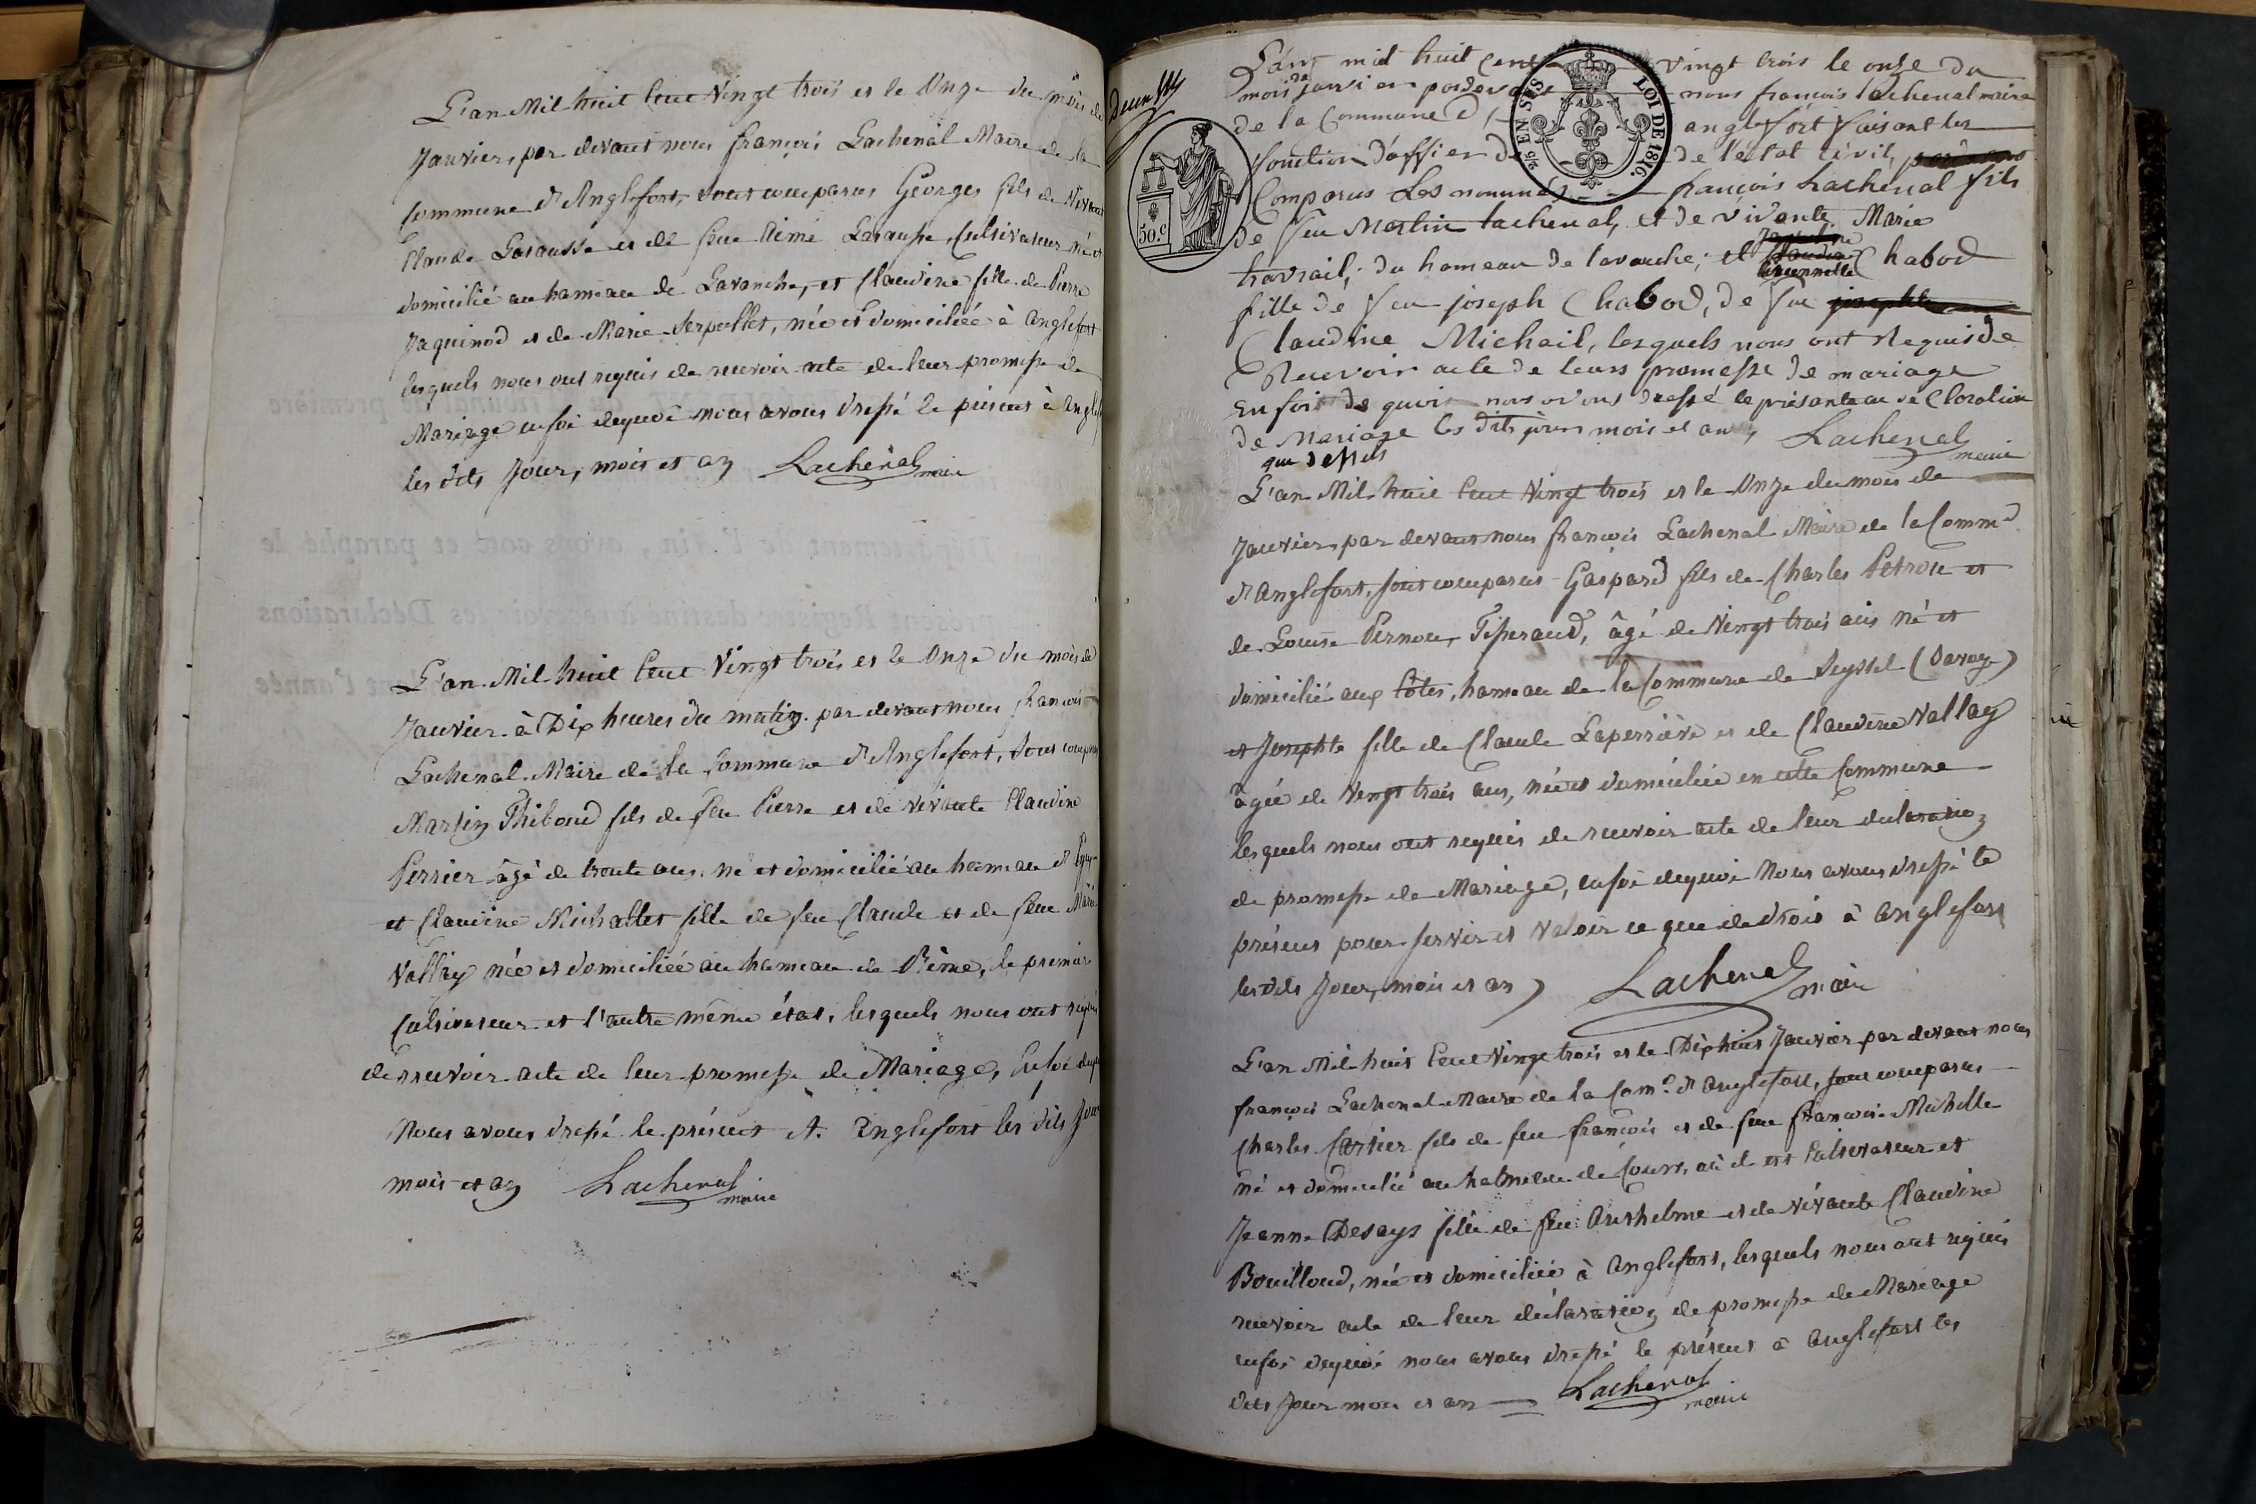 L'an Mil huit Cent Vingt trois et le Onze du mois de
Janvier, par devant nous françois Lachenal Maire de la
Commune d'Anglefort, sont comparus Georges fils de Vivant
Claude et de feue Cultivateur né et
domicilié au hameau de Lavanche, et Claudine fille de Pierre
Jaquinod et de Marie Serpollet, née et domiciliée à Anglefort
lesquels nous ont requis de recevoir acte de leur promesse de
Mariage en foi dequoi nous avons dressé le présent à Anglefort
les dits Jour, mois et an Lachenal maire
L'an Mil huit Cent Vingt trois et le Onze du mois de
Janvier à Dix heures du matin par devant nous françois
Lachenal Maire de la Commune d'Anglefort, sont comparus
Martin Thiboud fils de feu Pierre et de vivante Claudine
Perrier âgé de trente ans né et domicilié au hameau
et Claudine Michallet fille de feu Claude et de feue Marie
Vallay née et domiciliée au hameau de Rême, le premier
Cultivateur et l'autre même état, lesquels nous ont requis
de recevoir acte de leur promesse de Mariage, En foi dequoi
Nous avons dressé le présent A Anglefort les dits Jour
mois et an Lachenal maire
Deux
50.c
2/5 EN SUS
LOI DE 1816.
L'an mil huit Cent vingt trois le onze du
mois de janvier pardevant nous françois lachenal maire
de la Commune d' anglefort faisant les
fonction d'offier de l'état civil,
Comparus Les nommés françois Lachenal fils
de feu Martin lachenal, et de vivante Marie
travail, du hameau de lavanche, et Claudine Chabod
fille de feu joseph Chabod, de feu josephte
Claudine Michail, lesquels nous ont Requis de
Recevoir acte de leurs promesse de mariage
En foit de quoit nous avons dressé le présant acte de Claration
de Mariage les dits jour mois et an Lachenal
que dessus maire
L'an Mil huit Cent Vingt trois et le Onze du mois de
Janvier, par devant nous françois Lachenal Maire de la Comm.
d'Anglefort, sont comparus Gaspard fils de Charles Petrou et
de Louise Pernou, Tisserand, âgé de Vingt trois ans né et
domicilié aux Côtes, hameau de la Commune de Seyssel (Savoye)
et Josephte fille de Claude Laperrière et de Claudine Vallay
âgée de Vingt trois ans, née et domiciliée en cette Commune
lesquels nous ont requis de recevoir acte de leur déclaration
de promesse de Mariage, en foi dequoi Nous avons dressé le
présent pour servir et valoir ce que de droit à Anglefort
les dits Jour, mois et an Lachenal
maire
L'an Mil huit Cent Vingt trois et le Dixhuit Janvier par devant nous
françois Lachenal Maire de la Com.e d'Anglefort, sont comparus
Charles Cartier fils de feu françois et de feue françoise Michelle
né et domicilié au hameau de Cours, où il est Cultivateur et
Jeanne Desays fille de feu Anthelme et de vivante Claudine
Bouilloud, née et domiciliée à Anglefort, lesquels nous ont requis
recevoir acte de leur déclaration de promesse de Mariage
en foi dequoi nous avons dressé le présent à Anglefort les
dits Jour mois et an Lachenal
maire